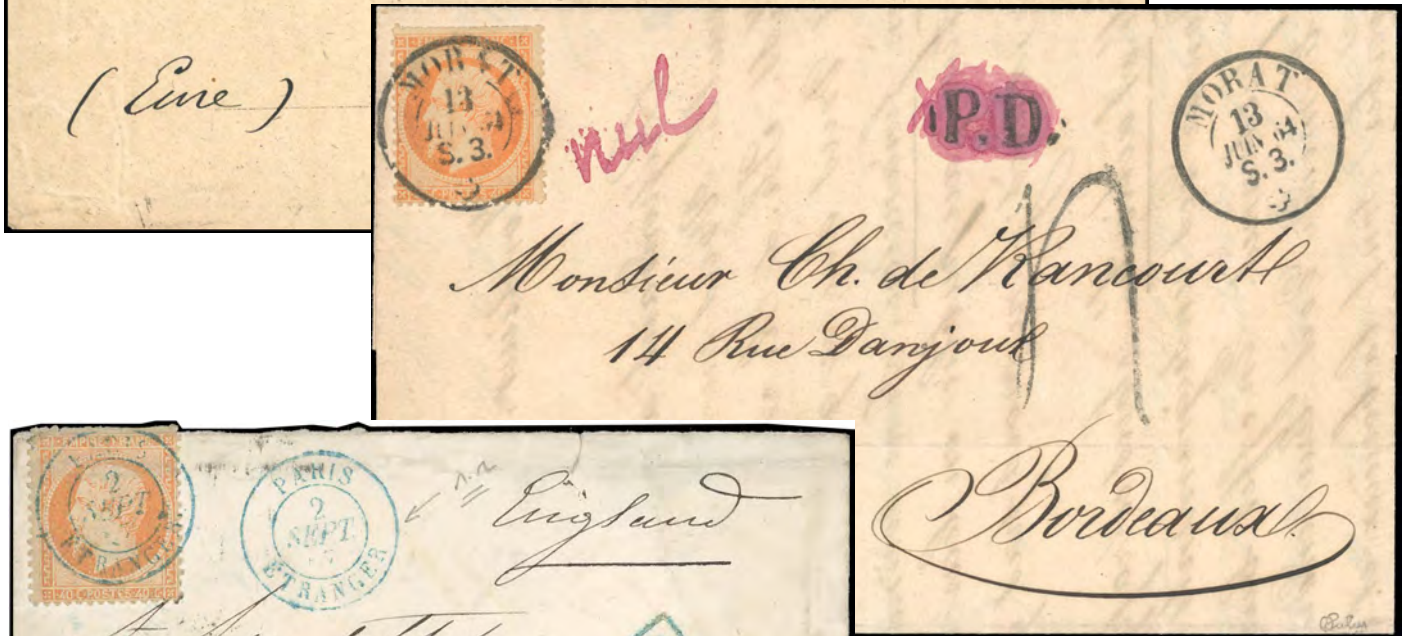 ( Eure )
MORAT
13
JUIN 64
S. 3.
nul
P.D.
MORAT
13
JUIN 64
S. 3.
Monsieur Ch. de Rancourt
14 Rue Danjou
Bordeaux
2
SEPT
ETRANGER
40 C POSTES 40 C
PARIS
2
SEPT.
ETRANGER
England